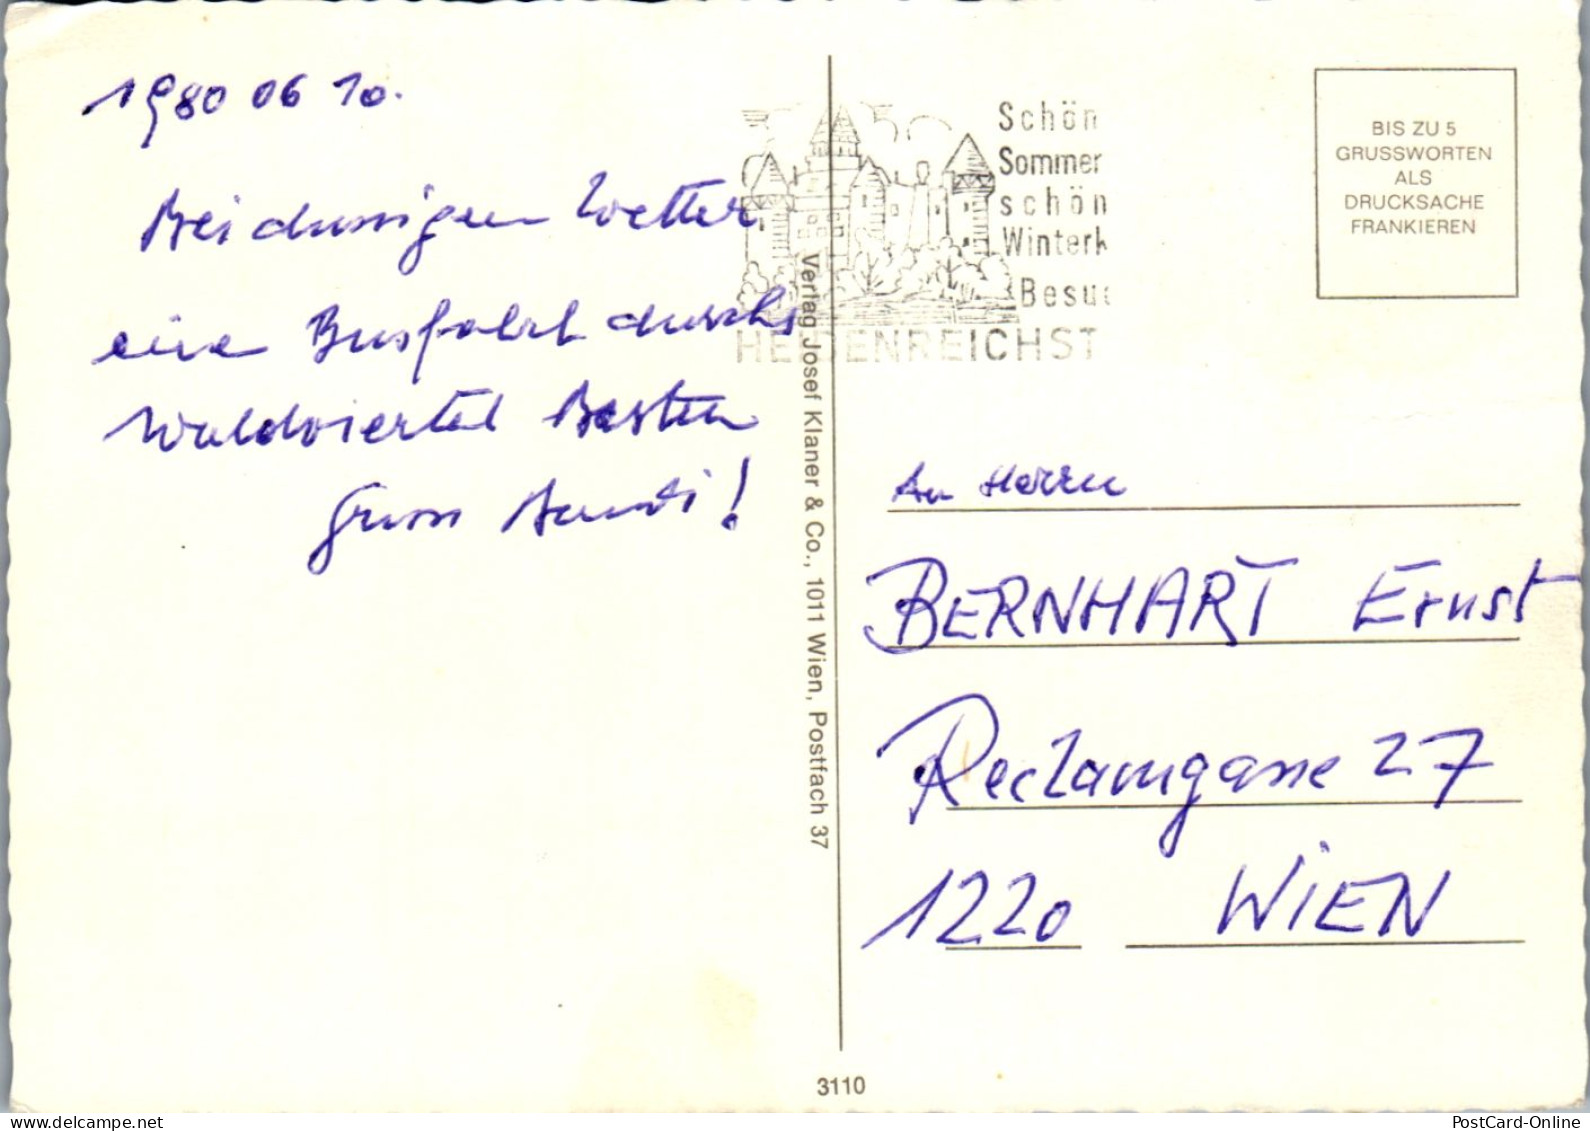 1980 06 10.
Bei dunsigen Wetter
eine Busfahrt durchs
Waldviertel Besten
Gruss
Schön
Sommer
schön
Winterk
Besuc
HEIDENREICHST
BIS ZU 5
GRUSSWORTEN
ALS
DRUCKSACHE
FRANKIEREN
Verlag Josef Klaner & Co., 1011 Wien, Postfach 37
An Herrn
BERNHART Ernst
Reclamgasse 27
1220 WIEN
3110
PostCard-Online